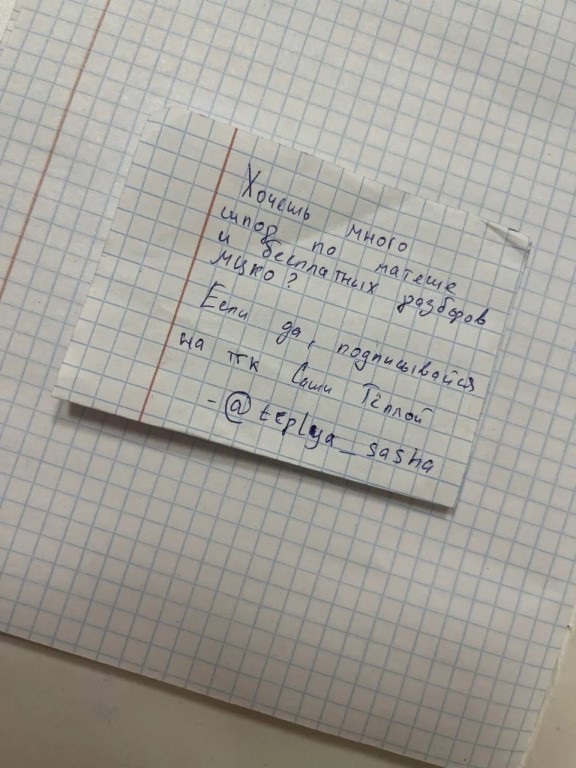 Хочешь много
шпор по матеше
и бесплатных разборов
МЦКО?
Если да, подписывайся
на тк Саши Тёплой
- @teplya_sasha